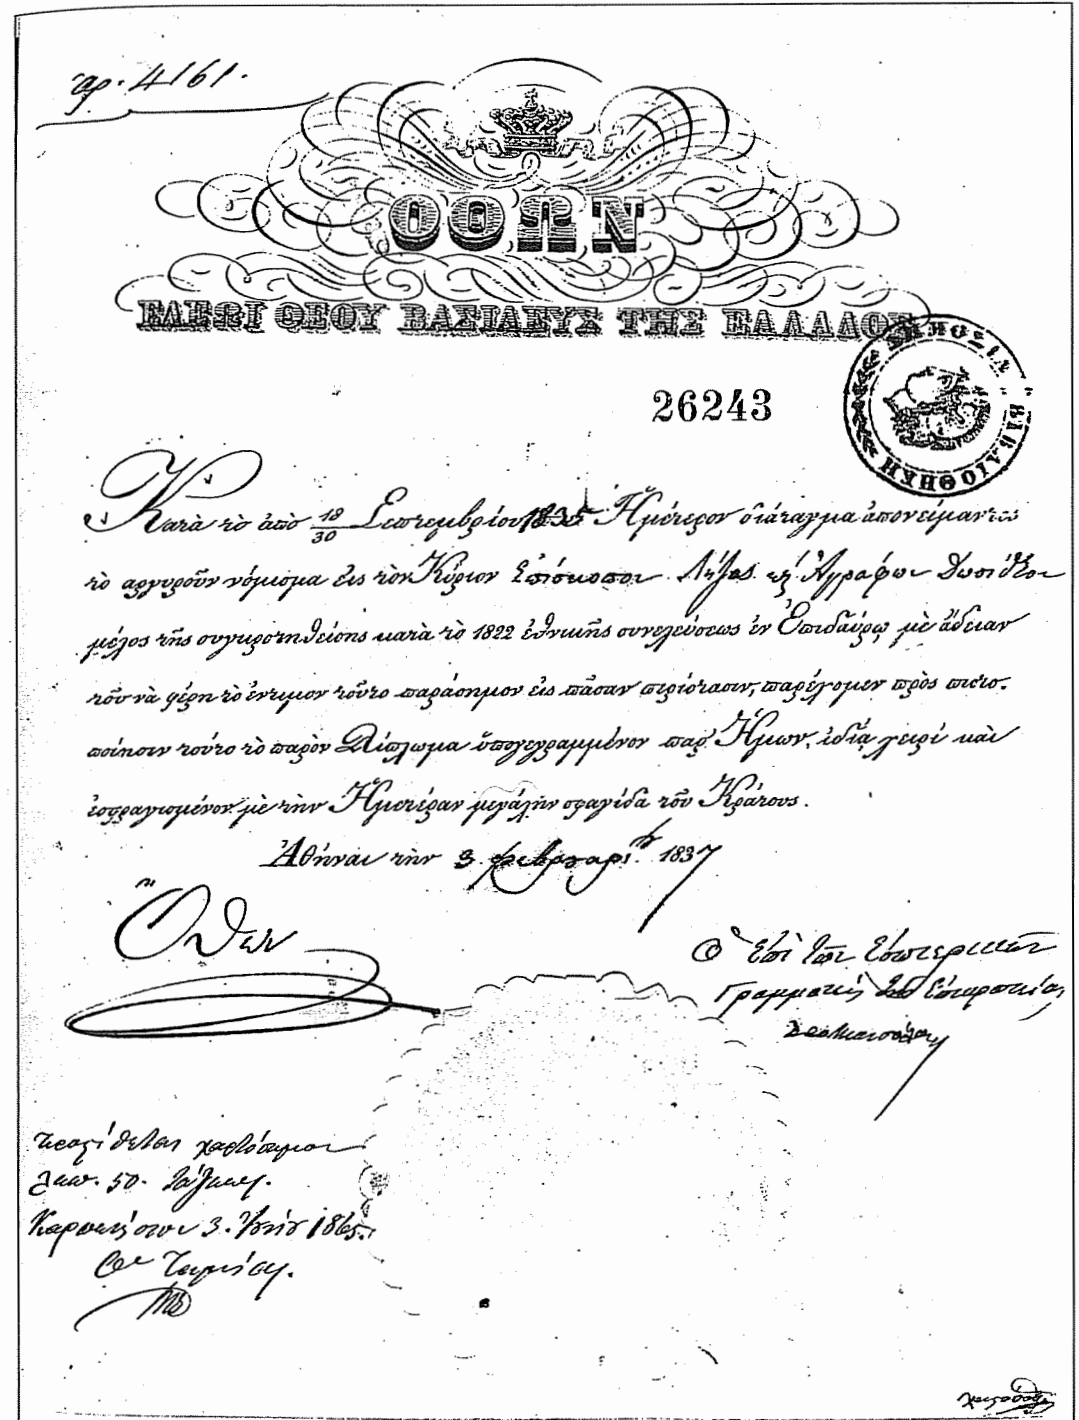 ἀρ. 4161.
ΟΘΩΝ
ΕΛΕΩι ΘΕΟΥ ΒΑΣΙΛΕΥΣ ΤΗΣ ΕΛΛΑΔΟΣ
ΔΗΜΟΣΙΑ ΒΙΒΛΙΟΘΗΚΗ
26243
Κατὰ τὸ ἀπὸ 18/30 Σεπτεμβρίου 1835 Ἡμέτερον διάταγμα ἀπονείμαντες
τὸ ἀργυροῦν νόμισμα εἰς τὸν Κύριον Ἐπίσκοπον Λιτζας καὶ Ἀγράφων Δωσίθεον
μέλος τῆς συγκροτηθείσης κατὰ τὸ 1822 ἐθνικῆς συνελεύσεως ἐν Ἐπιδαύρῳ μὲ ἄδειαν
τοῦ νὰ φέρῃ τὸ ἔντιμον τοῦτο παράσημον εἰς πᾶσαν περίστασιν, παρέχομεν πρὸς πιστο-
ποίησιν τούτο τὸ παρὸν Δίπλωμα ὑπογεγραμμένον παρ' Ἡμων, ἰδίᾳ χειρὶ καὶ
ἐσφραγισμένον μὲ τὴν Ἡμετέραν μεγάλην σφαγίδα τοῦ Κράτους.
Ἀθῆναι τὴν 3 φεβρουαρί. 1837
Ὄθων
Ὁ ἐπὶ τῶν Ἐσωτερικῶν
Γραμματεὺς τῆς Ἐπικρατείας
χαρτόσημον
λεπ. 50.
Καρπενήσιον 3. 1865.
Ὁ Ταμίας.